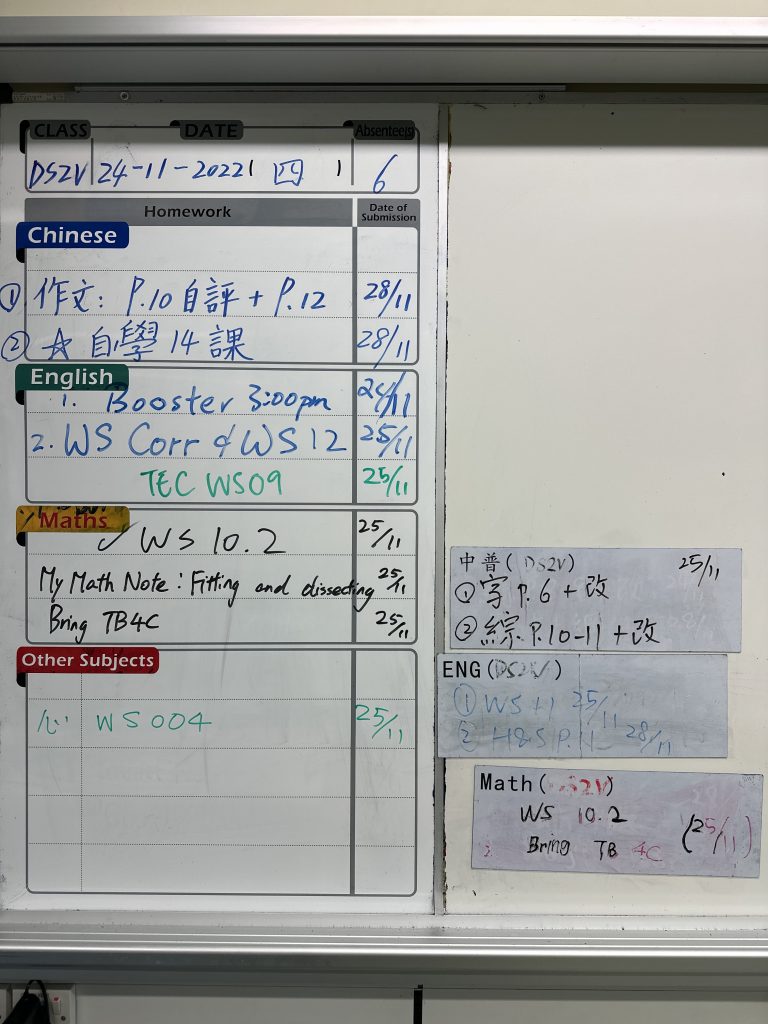 CLASS DATE Absentee(s)
DS2V 24-11-2022 ( 四 ) 6
Homework Date of Submission
Chinese
① 作文: P.10 自評 + P.12 28/11
② ☆ 自學 14 課 28/11
English
1. Booster 3:00pm /11
2. WS Corr & WS 12 25/11
TEC WS09 25/11
Maths
✓ WS 10.2 25/11
My Math Note : Fitting and dissecting 25/11
Bring TB4C 25/11
Other Subjects
WS 004 25/11
中普( DS2V) 25/11
① 字 P.6 + 改
② 綜 P.10-11 + 改
ENG(DS2V)
① WS 11 25/11
② H&S P. 28/11
Math( DS2V)
WS 10.2 (25/11)
Bring TB 4C